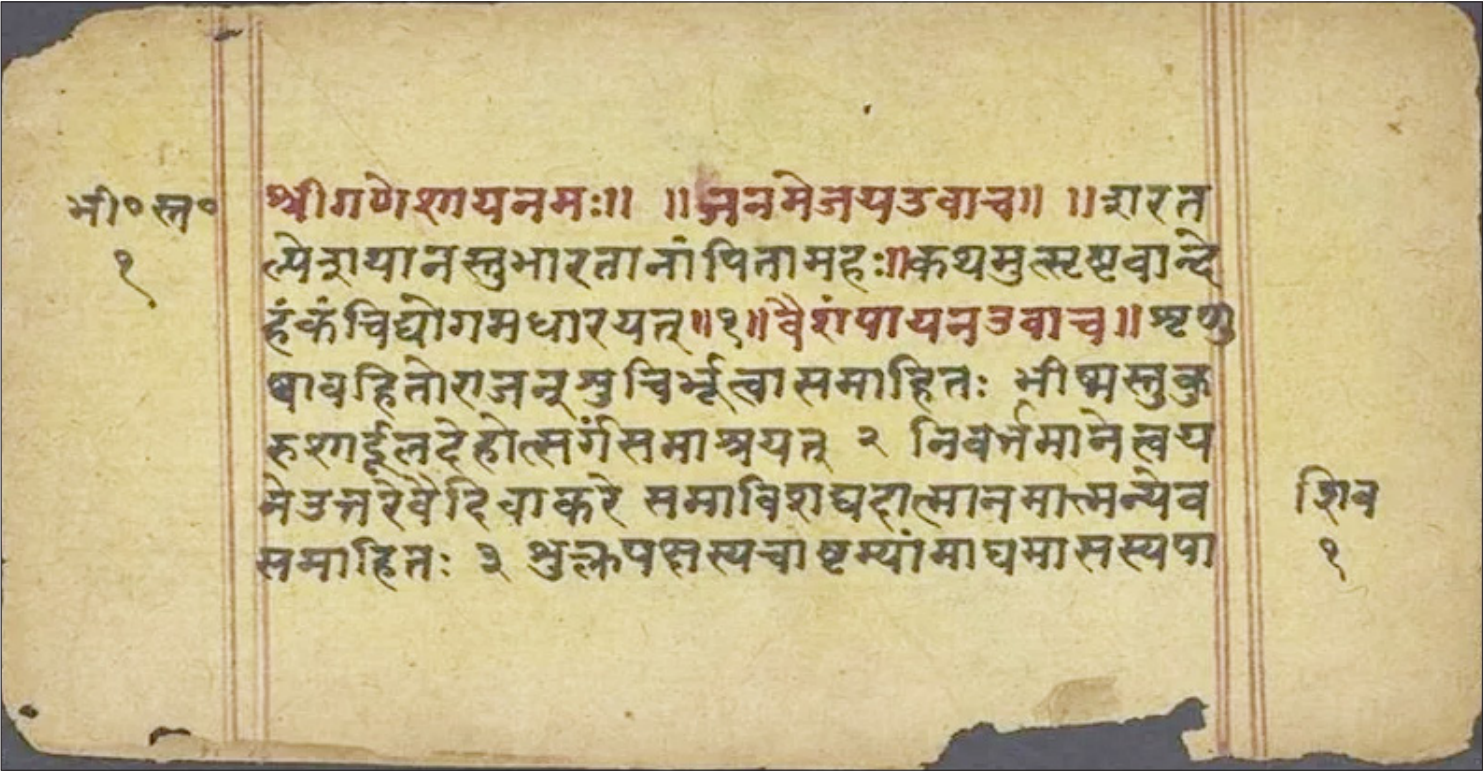 भी॰ स्त॰
१
श्रीगणेशायनमः॥ ॥जनमेजयउवाच॥ ॥शरत
ल्पेशयानस्तुभारतानांपितामहः॥कथमुत्सृष्टवान्दे
हंकंचिद्योगमधारयत्॥१॥वैशंपायनउवाच॥शृणु
ष्वावहितोराजन्शुचिर्भूत्वासमाहितः भीष्मस्तुकु
रुशार्दूलदेहोत्सर्गंसमाश्रयत् २ निवर्त्तमानेत्वय
नेउत्तरेवैदिवाकरे समाविशद्यहात्मानमात्मन्येव
समाहितः ३ शुक्लपक्षस्यचाष्टम्यांमाघमासस्यपा
शिव
१